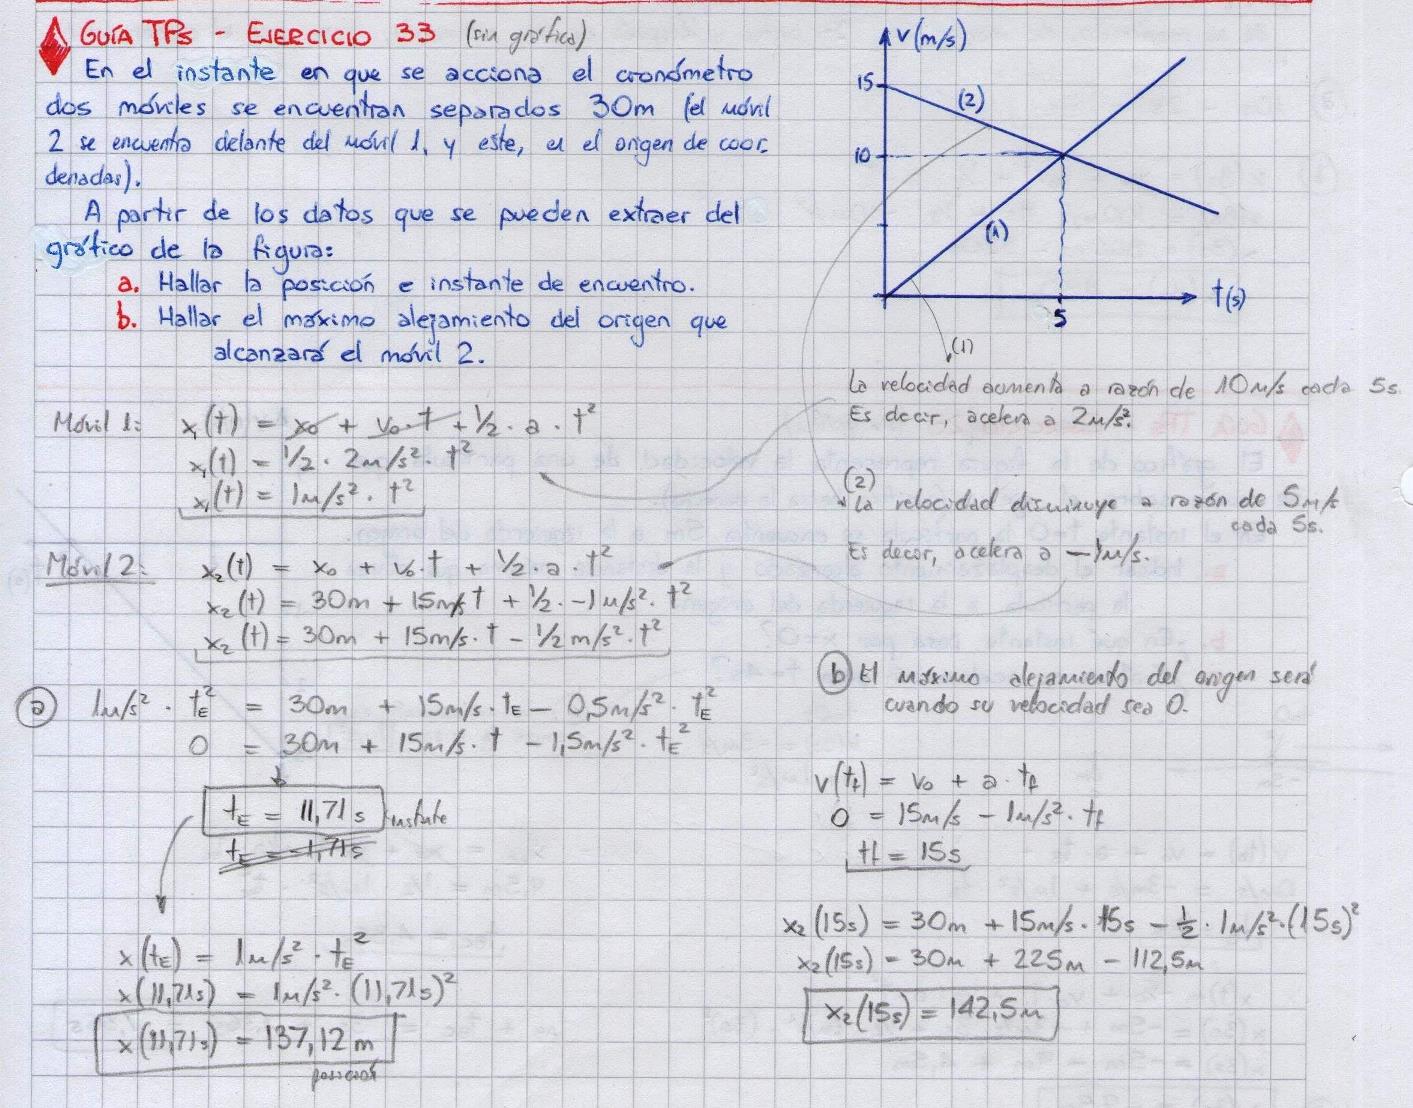 GUÍA TPs - EJERCICIO 33 (sin gráfica)
En el instante en que se acciona el cronómetro
dos móviles se encuentran separados 30m (el móvil
2 se encuentra delante del móvil 1, y este, en el origen de coor-
denadas).
A partir de los datos que se pueden extraer del
gráfico de la figura:
a. Hallar la posición e instante de encuentro.
b. Hallar el máximo alejamiento del origen que
alcanzará el móvil 2.
v(m/s)
15
(2)
10
(1)
t(s)
5
(1)
La velocidad aumenta a razón de 10m/s cada 5s.
Es decir, acelera a 2m/s².
(2)
La velocidad disminuye a razón de 5m/s
cada 5s.
Es decir, acelera a -1m/s.
Móvil 1: x₁(t) = x₀ + v₀·t + 1/2 · a · t²
x₁(t) = 1/2 · 2m/s² · t²
x₁(t) = 1m/s² · t²
Móvil 2: x₂(t) = x₀ + v₀·t + 1/2 · a · t²
x₂(t) = 30m + 15m/s t + 1/2 · -1m/s² · t²
x₂(t) = 30m + 15m/s · t - 1/2 m/s² · t²
a 1m/s² · t_E² = 30m + 15m/s · t_E - 0,5m/s² · t_E²
0 = 30m + 15m/s · t - 1,5m/s² · t_E²
t_E = 11,71s instante
t_E = -1,71s
x(t_E) = 1m/s² · t_E²
x(11,71s) = 1m/s² · (11,71s)²
x(11,71s) = 137,12m
posición
b El máximo alejamiento del origen será
cuando su velocidad sea 0.
v(tf) = v₀ + a · tf
0 = 15m/s - 1m/s² · tf
tf = 15s
x₂(15s) = 30m + 15m/s · 15s - 1/2 · 1m/s² · (15s)²
x₂(15s) = 30m + 225m - 112,5m
x₂(15s) = 142,5m